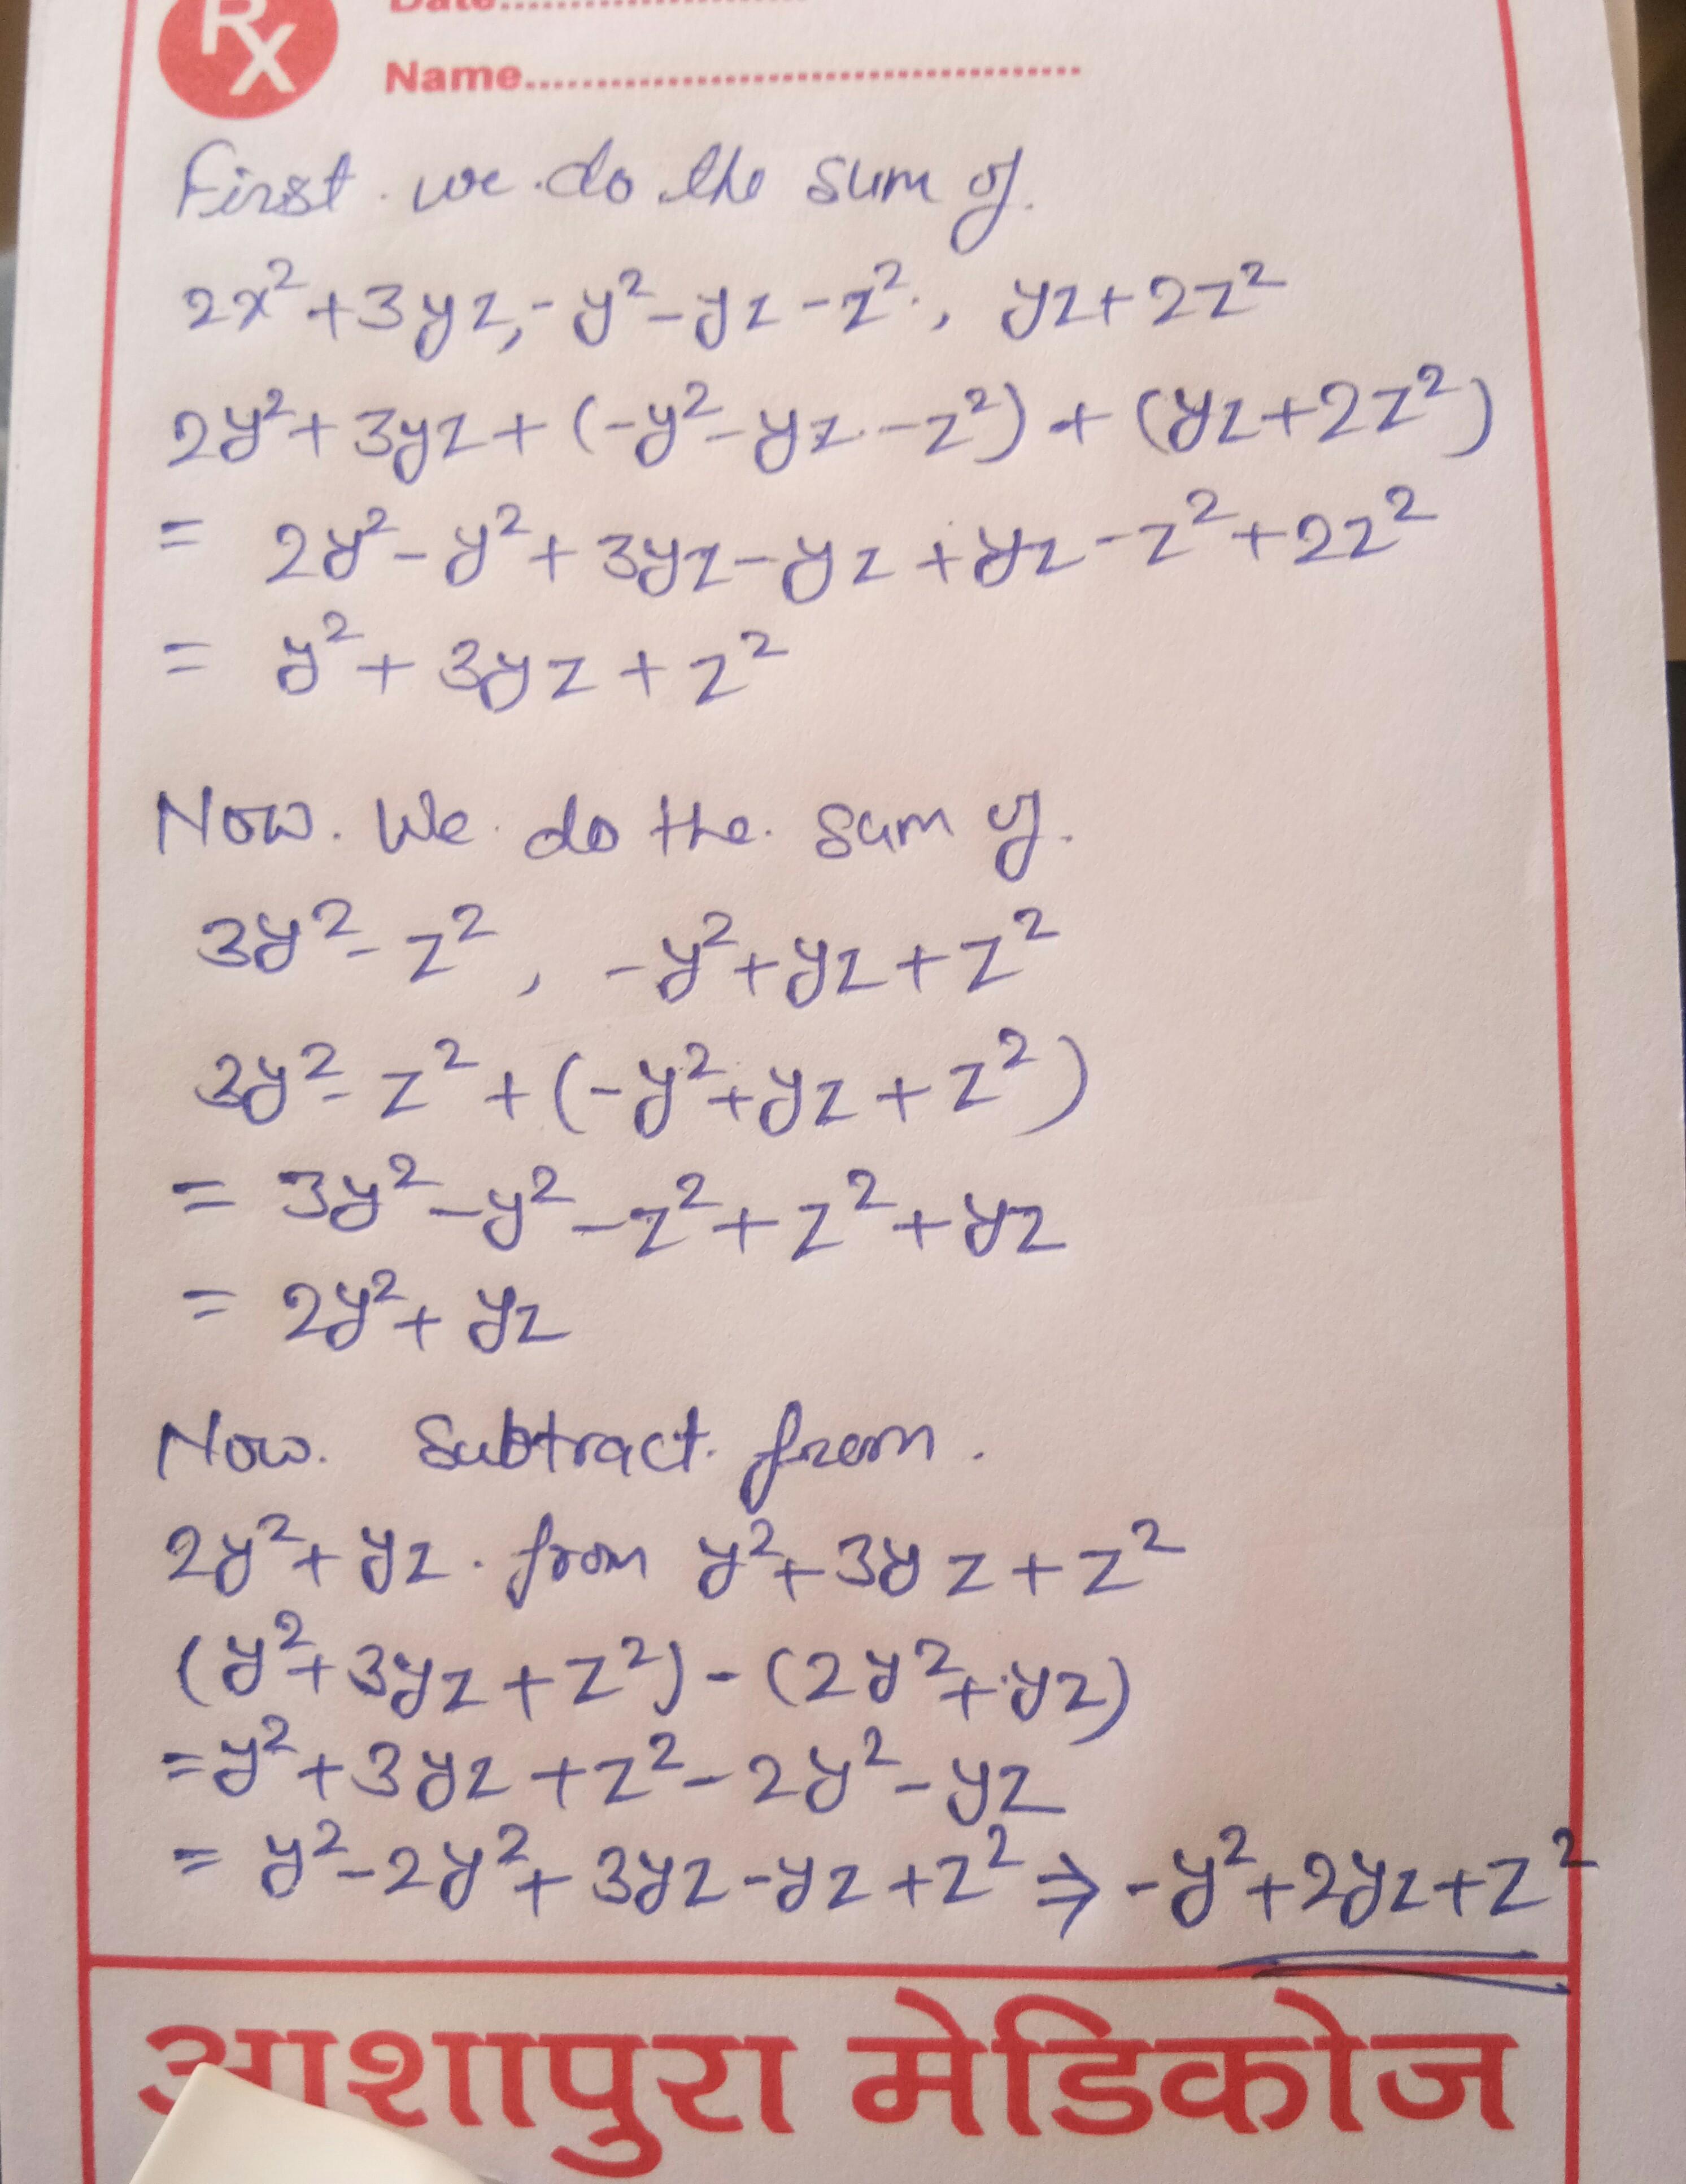 Rx
Date..............................
Name........................................
First we do the sum of.
2x²+3yz, -y²-yz-z², yz+2z²
2y²+3yz+(-y²-yz-z²)+(yz+2z²)
= 2y²-y²+3yz-yz+yz-z²+2z²
= y²+3yz+z²
Now. We do the sum of.
3y²-z², -y²+yz+z²
3y²-z²+(-y²+yz+z²)
= 3y²-y²-z²+z²+yz
= 2y²+yz
Now. Subtract from.
2y²+yz. from y²+3yz+z²
(y²+3yz+z²)-(2y²+yz)
=y²+3yz+z²-2y²-yz
= y²-2y²+3yz-yz+z² ⇒ -y²+2yz+z²
आशापुरा मेडिकोज